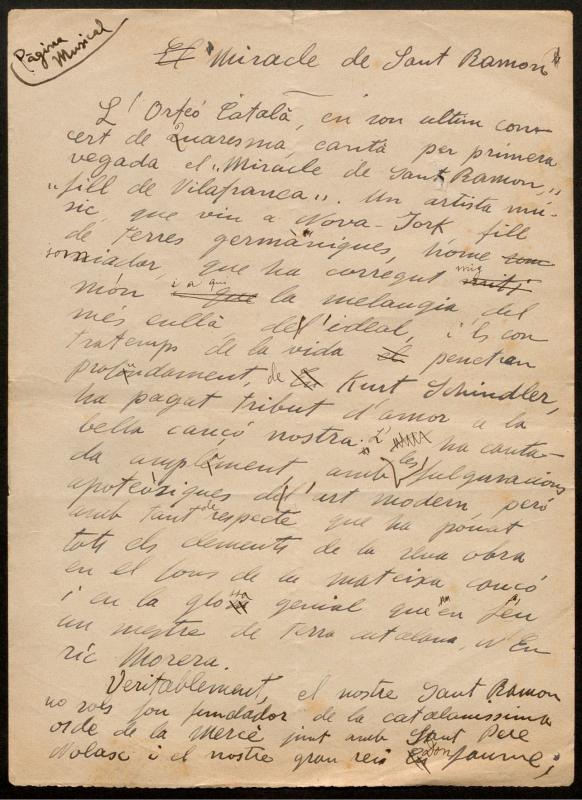 Pàgina Musical
El "Miracle de Sant Ramon"
L'Orfeó Català, en son ultim con-
cert de Quaresma, cantà per primera
vegada el "Miracle de Sant Ramon,,
"fill de Vilafranca". Un artista mú-
sic, que viu a Nova-York fill
de terres germàniques, home
somniador, que ha corregut mig
món i a qui la melangia del
més enllà de l'ideal, i els con
tratemps de la vida penetren
profondament, de Kurt Schindler,
ha pagat tribut d'amor a la
bella cançó nostra. L' ha canta-
da amplement amb les fulguracions
apoteòsiques de l'art modern, però
amb tant de respecte que ha pouat
tots els elements de la seva obra
en el fons de la mateixa cançó
i en la glosa genial que en féu
un mestre de terra catalana, N'En
ric Morera.
Veritablement, el nostre Sant Ramon
no sols fou fundador de la catalanissima
orde de la Mercè junt amb Sant Pere
Nolasc i el nostre gran reis Don Jaume;